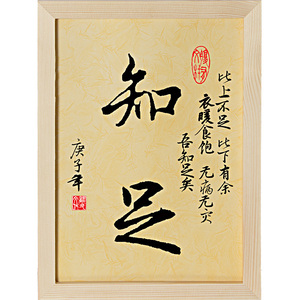 知足
比上不足 比下有余
衣暖食饱 无病无灾
吾知足矣
庚子年